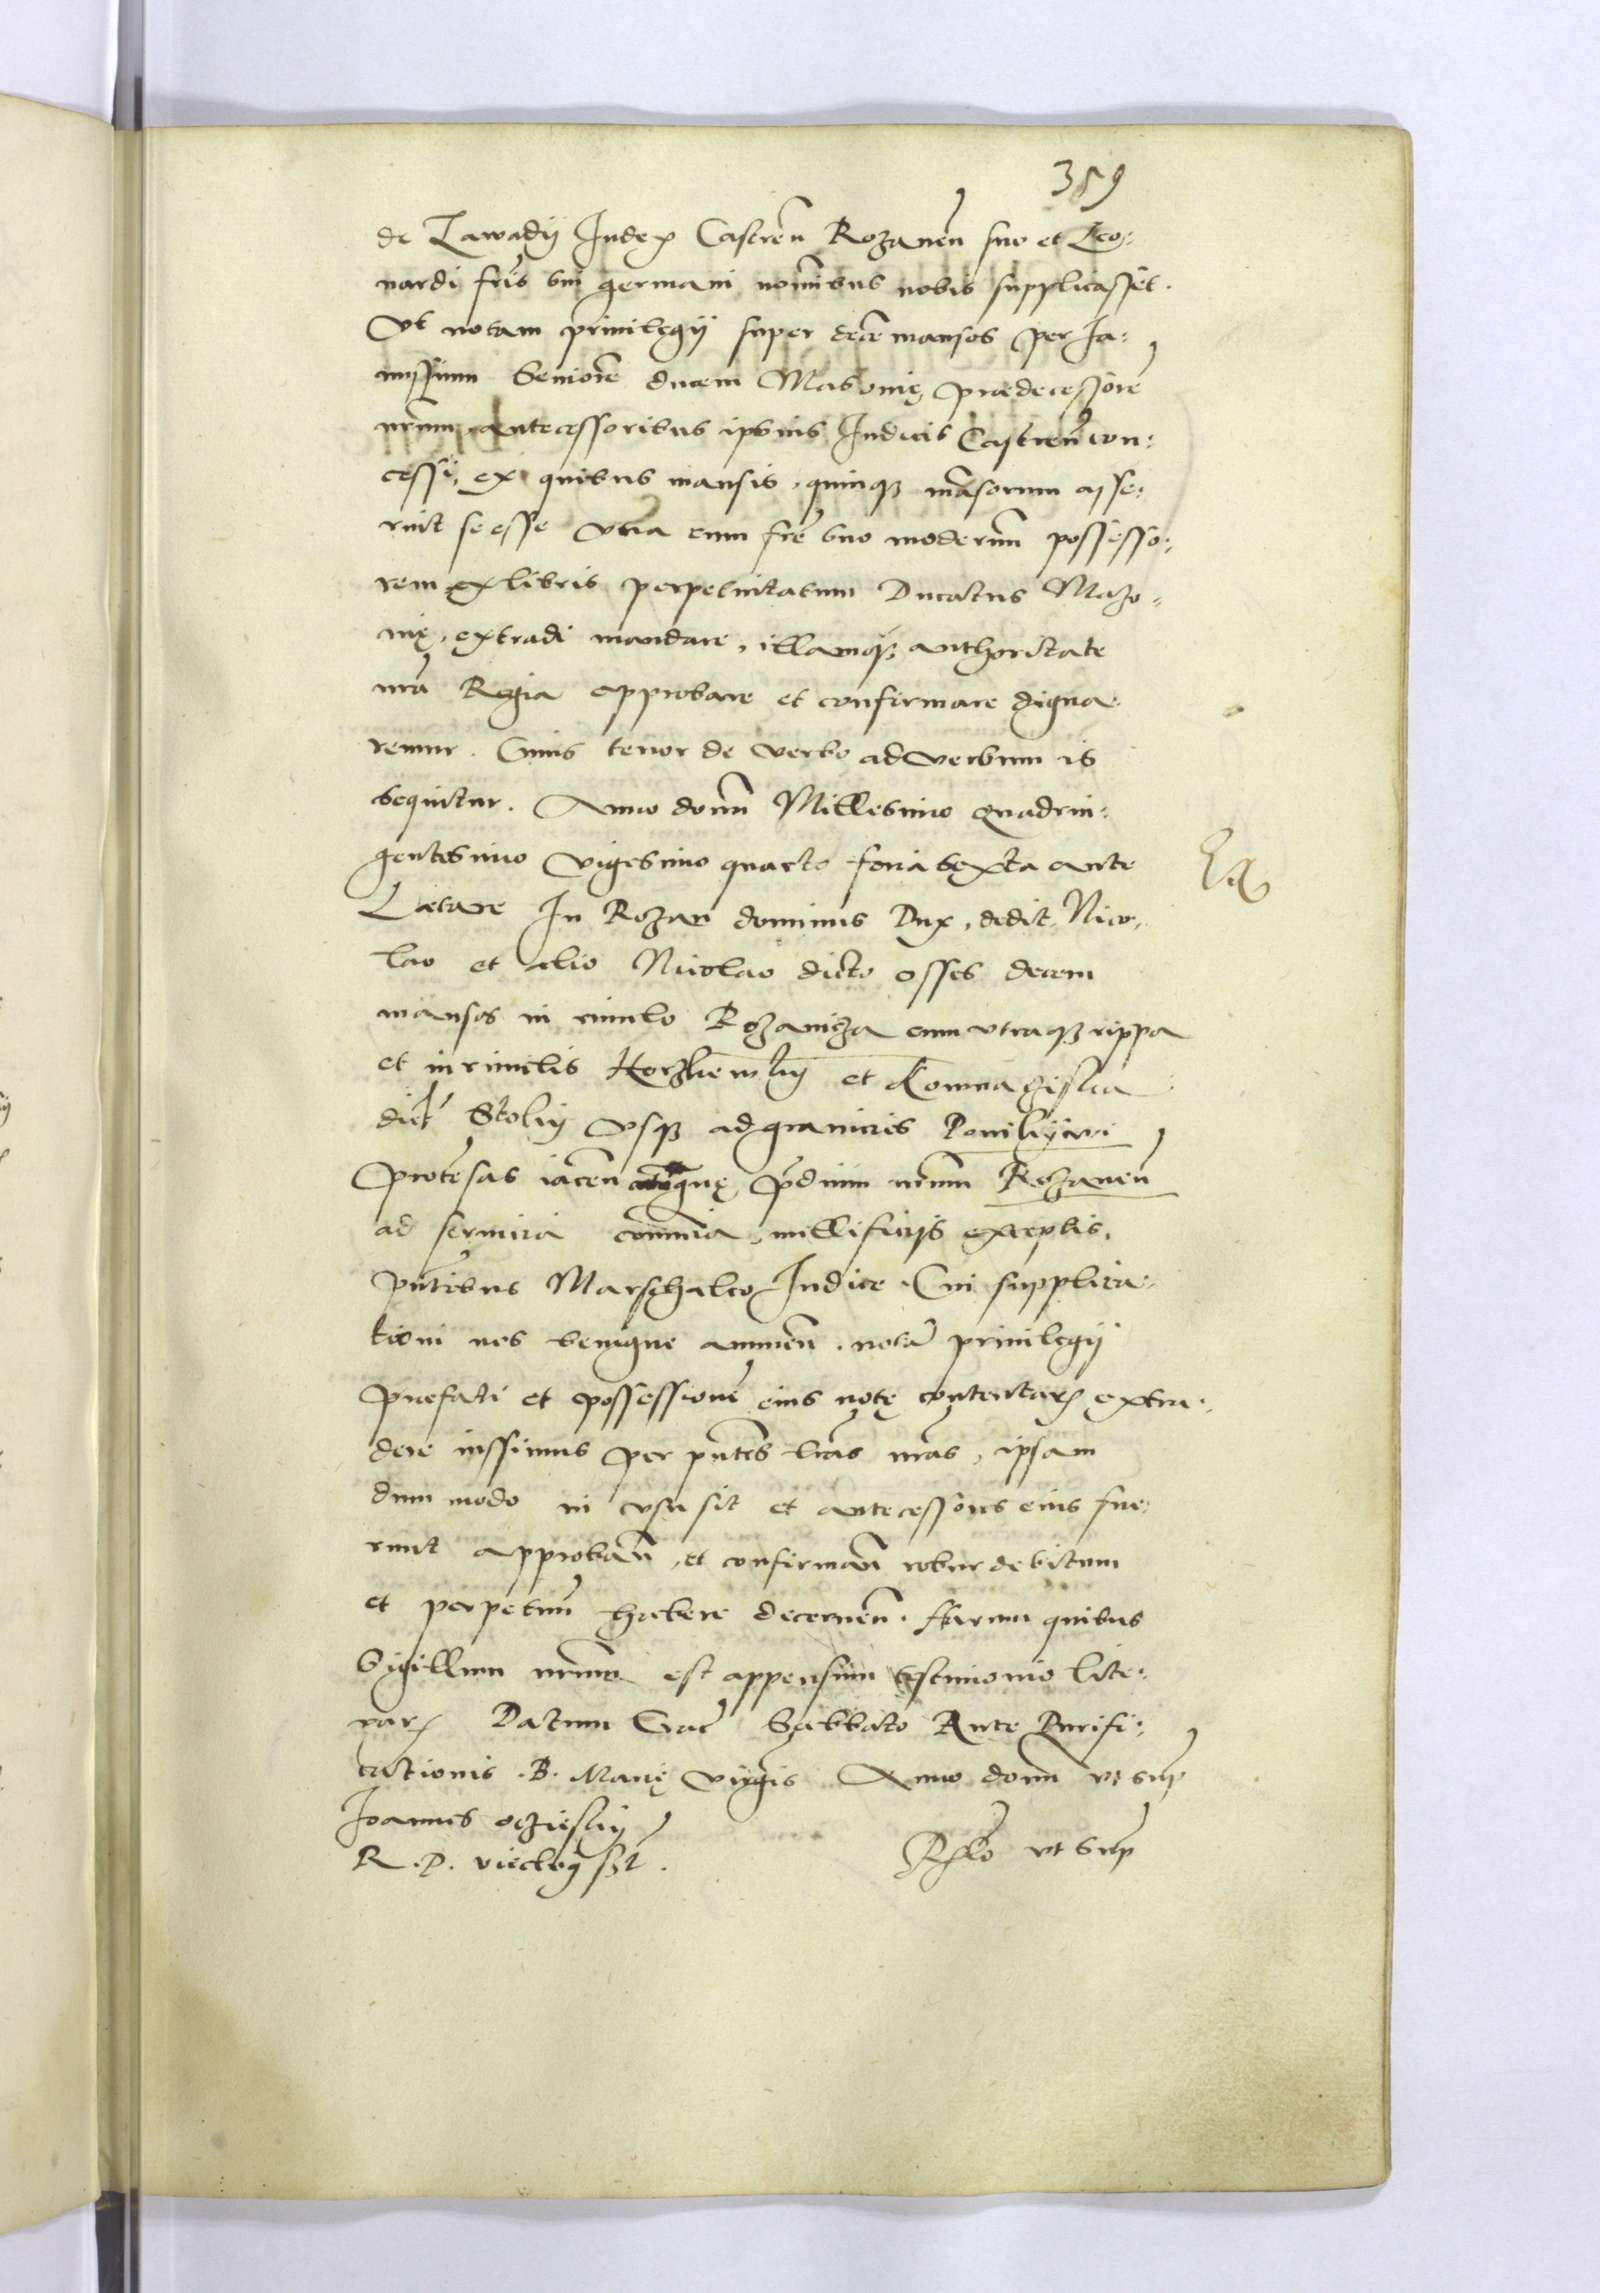 359
de Zawady Iudex Castren Rozanen suo et Leo:
nardi fris sui germani nominibus nobis supplicasset.
Vt notam priuilegij super dece mansos per Ia:
nussium Seniore ducem Masouię, prædecessore
nrum antecessoribus ipsius Iudicis Castren con:
cessi, ex quibus mansis, quinq mansorum asse:
ruit se esse vna cum fre suo modernum possesso:
rem ex libris perpetuitatum Ducatus Mazo:
uię, extradi mandare, illamq authoritate
nra Regia approbare et confirmare digna:
remur. Cuius tenor de verbo ad verbum is
sequitur. Anno domi Millesimo quadrin:
gentesimo vigesimo quarto feria sexta ante
Lætare In Rozan dominus Dux, dedit Nico:
lao et alio Nicolao dicto Osses decem
mansos in riuulo Rozanicza cum vtraq rippa
et in riuulis et
dict Stoky vsq ad granicies
protensas iacen nrum Rozanen
ad seruicia communia, mellificijs exceptis,
pntibus Marschalco Iudice. Cui supplica:
tioni nos benigne annuen. nota priuilegij
præfati et possessione eius notę contentar extra:
dere iussimus per pntes lras nras, ipsam
dum modo in vsu sit et antecessores eius fue:
runt approban, et confirman robur debitum
et perpetuum habere decernen. Harum quibus
Sigillum nrum est appensum testimonio lite:
rar Datum Crac Sabbato Ante Purifi:
cationis .B. Marię virginis Anno domi vt supr
Joannes oczieski
R.P. vicecanc sst. Rlo vt supr